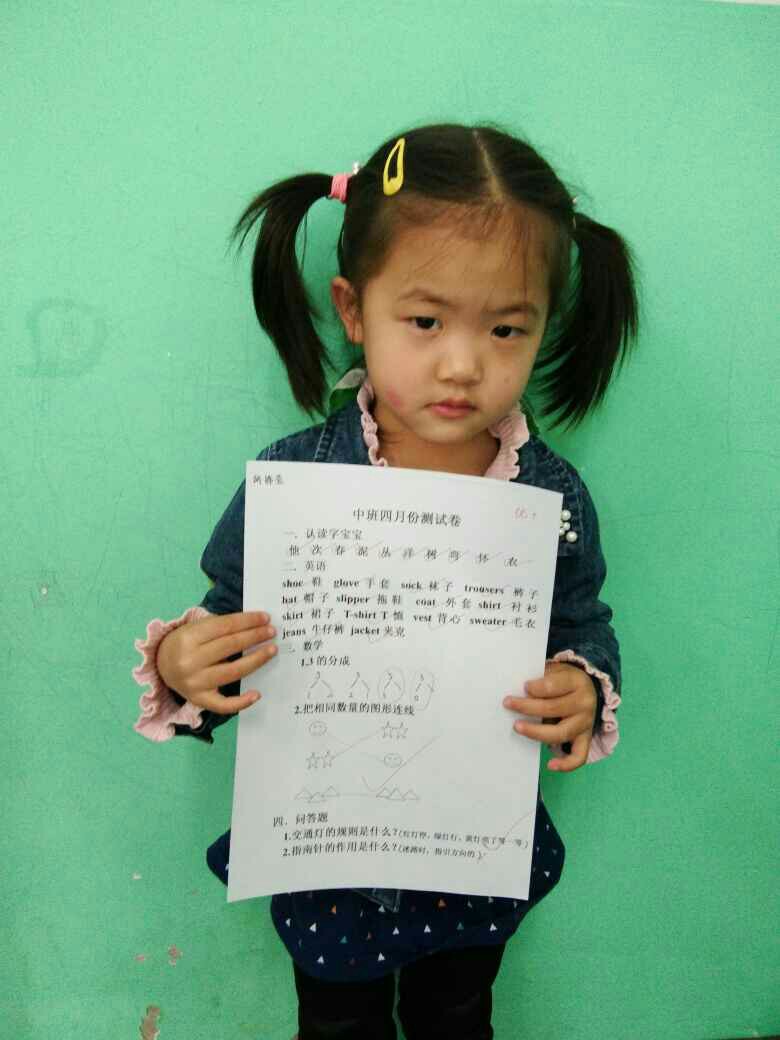 中班四月份测试卷
优+
一、认读字宝宝
他 次 春 泥 丛 洋 树 弯 体 衣
二、英语
shoe 鞋 glove 手套 sock 袜子 trousers 裤子
hat 帽子 slipper 拖鞋 coat 外套 shirt 衬衫
skirt 裙子 T-shirt T 恤 vest 背心 sweater 毛衣
jeans 牛仔裤 jacket 夹克
三、数学
1.3 的分成
3 3 3 3
2.把相同数量的图形连线
四、问答题
1.交通灯的规则是什么?(红灯停,绿灯行,黄灯亮了等一等)
2.指南针的作用是什么?(迷路时,指引方向的)